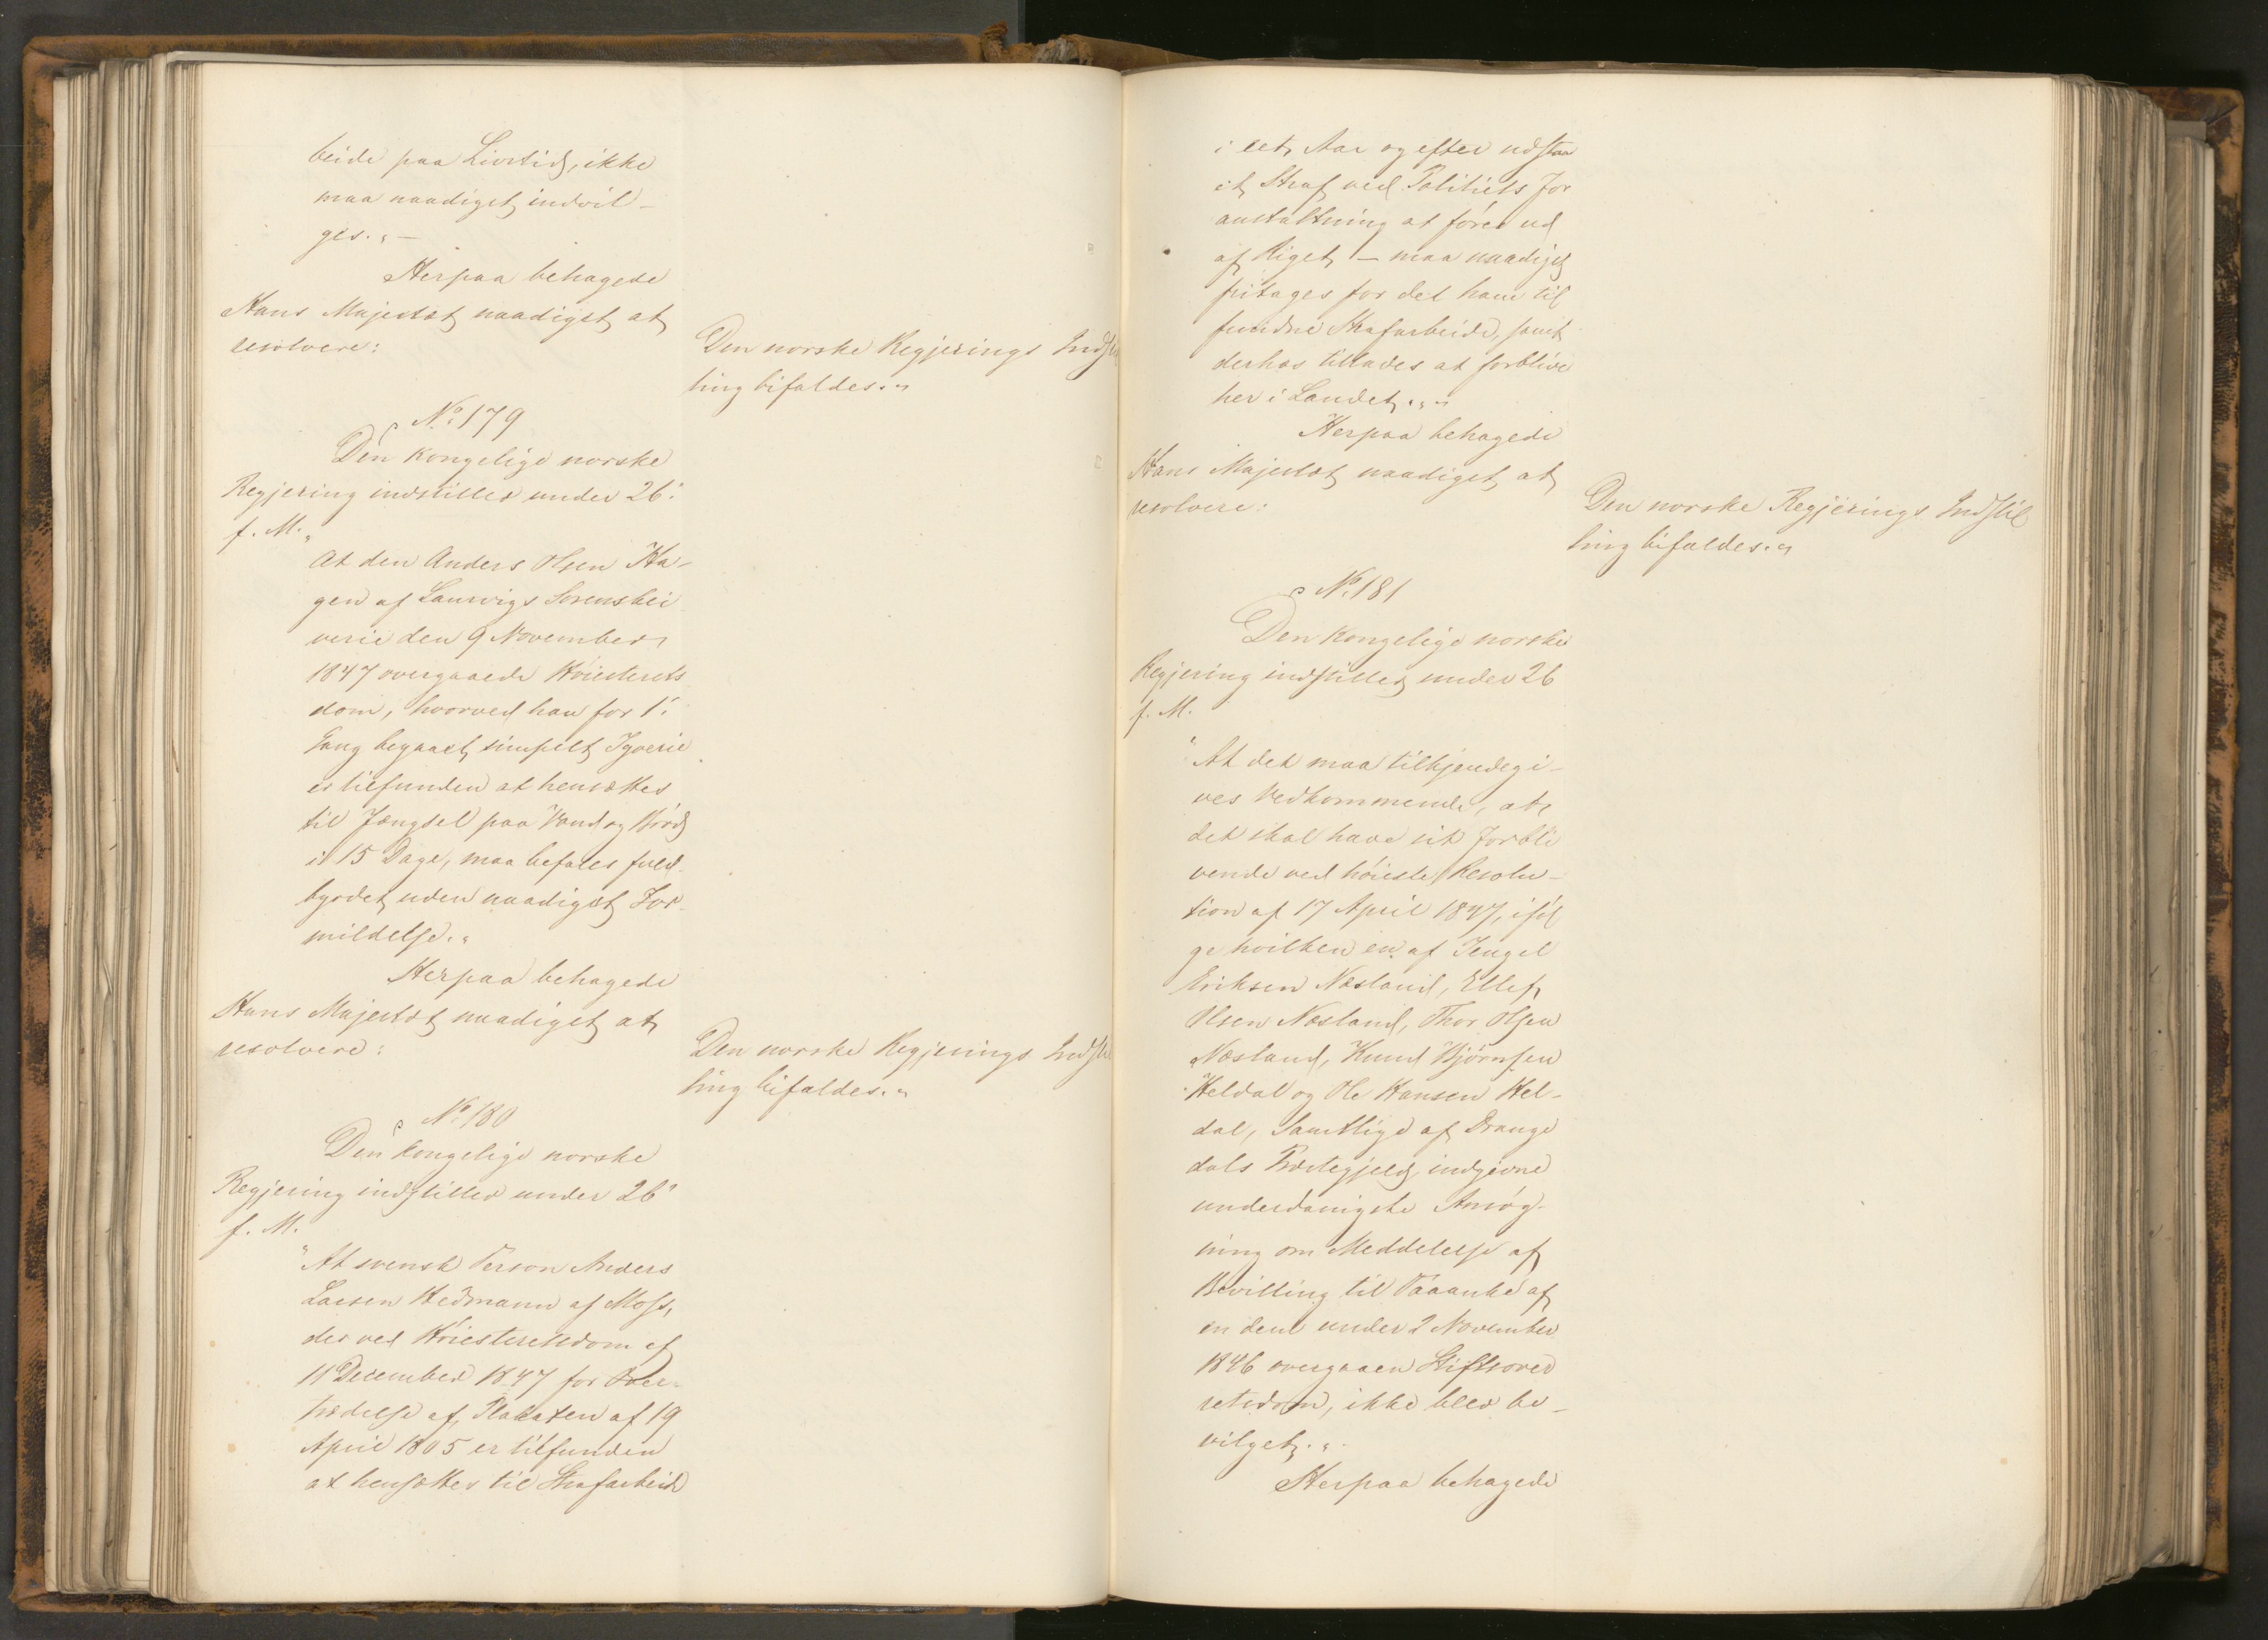 beide paa Livstid, ikke
maa naadigst indvil-
ges."-
Herpaa behagede
Hans Majestæt naadigst at
resolvere:
Den norske Regjerings Indstil
ling bifaldes."
No 179
Den kongelige norske
Regjering indstiller under 26.
f. M.
"At den Anders Olsen Ha-
gen af Laurvigs Sorenskri
verie den 9 November
1847 overgaaede Høiesterets
dom, hvorved han for 1.
Gang begaaet simpelt Tyverie
er tilfunden at hensættes
til Fængsel paa Vand og Brød
i 15 Dage, maa befales fuld-
byrdet uden naadigst For-
mildelse."
Herpaa behagede
Hans Majestæt naadigst at
resolvere:
Den norske Regjerings Indstil
ling bifaldes."
No 180
Den kongelige norske
Regjering indstiller under 26
f. M.
"At svensk Person Anders
Larsen Hedmann af Moss,
der ved Høiesteretsdom af
11 December 1847 for Over-
trædelse af Plakaten af 19
April 1805 er tilfunden
at hensættes til Strafarbeide
i eet Aar og efter udstaa
et Straf ved Politiets For
anstaltning at føres ud
af Riget, - maa naadigst
fritages for det ham til
fundne Strafarbeide, samt
derhos tillades at forblive
her i Landet."
Herpaa behagede
Hans Majestæt naadigst at
resolvere:
Den norske Regjerings Indstil
ling bifaldes."
No 181
Den kongelige norske
Regjering indstiller under 26
f. M.
"At det maa tilkjendegi-
ves Vedkommende, at
det skal have sit Forbli
vende ved høieste Resolu-
tion af 17 April 1847, iføl
ge hvilken en af Tengel
Eriksen Næsland, Ellef
Olsen Næsland, Thor Olsen
Næsland, Knud Bjørnsen
Heldal og Ole Hansen Hel-
dal, Samtlige af Drange
dals Præstegjeld, indgivne
underdanigste Ansøg-
ning om Meddelelse af
Bevilling til Paaanke af
en dem under 2 November
1846 overgaaen Stiftsover
retsdom, ikke blev be-
vilget."
Herpaa behagede